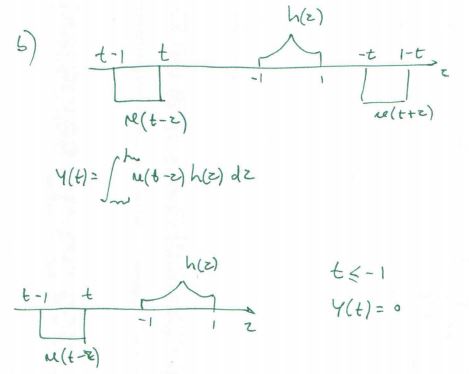 b)
h(z)
t-1 t -1 1 -t 1-t z
u(t-z) u(t+z)
y(t) = ∫ u(t-z) h(z) dz
h(z)
t ≤ -1
t-1 t -1 1 z
y(t) = 0
u(t-z)